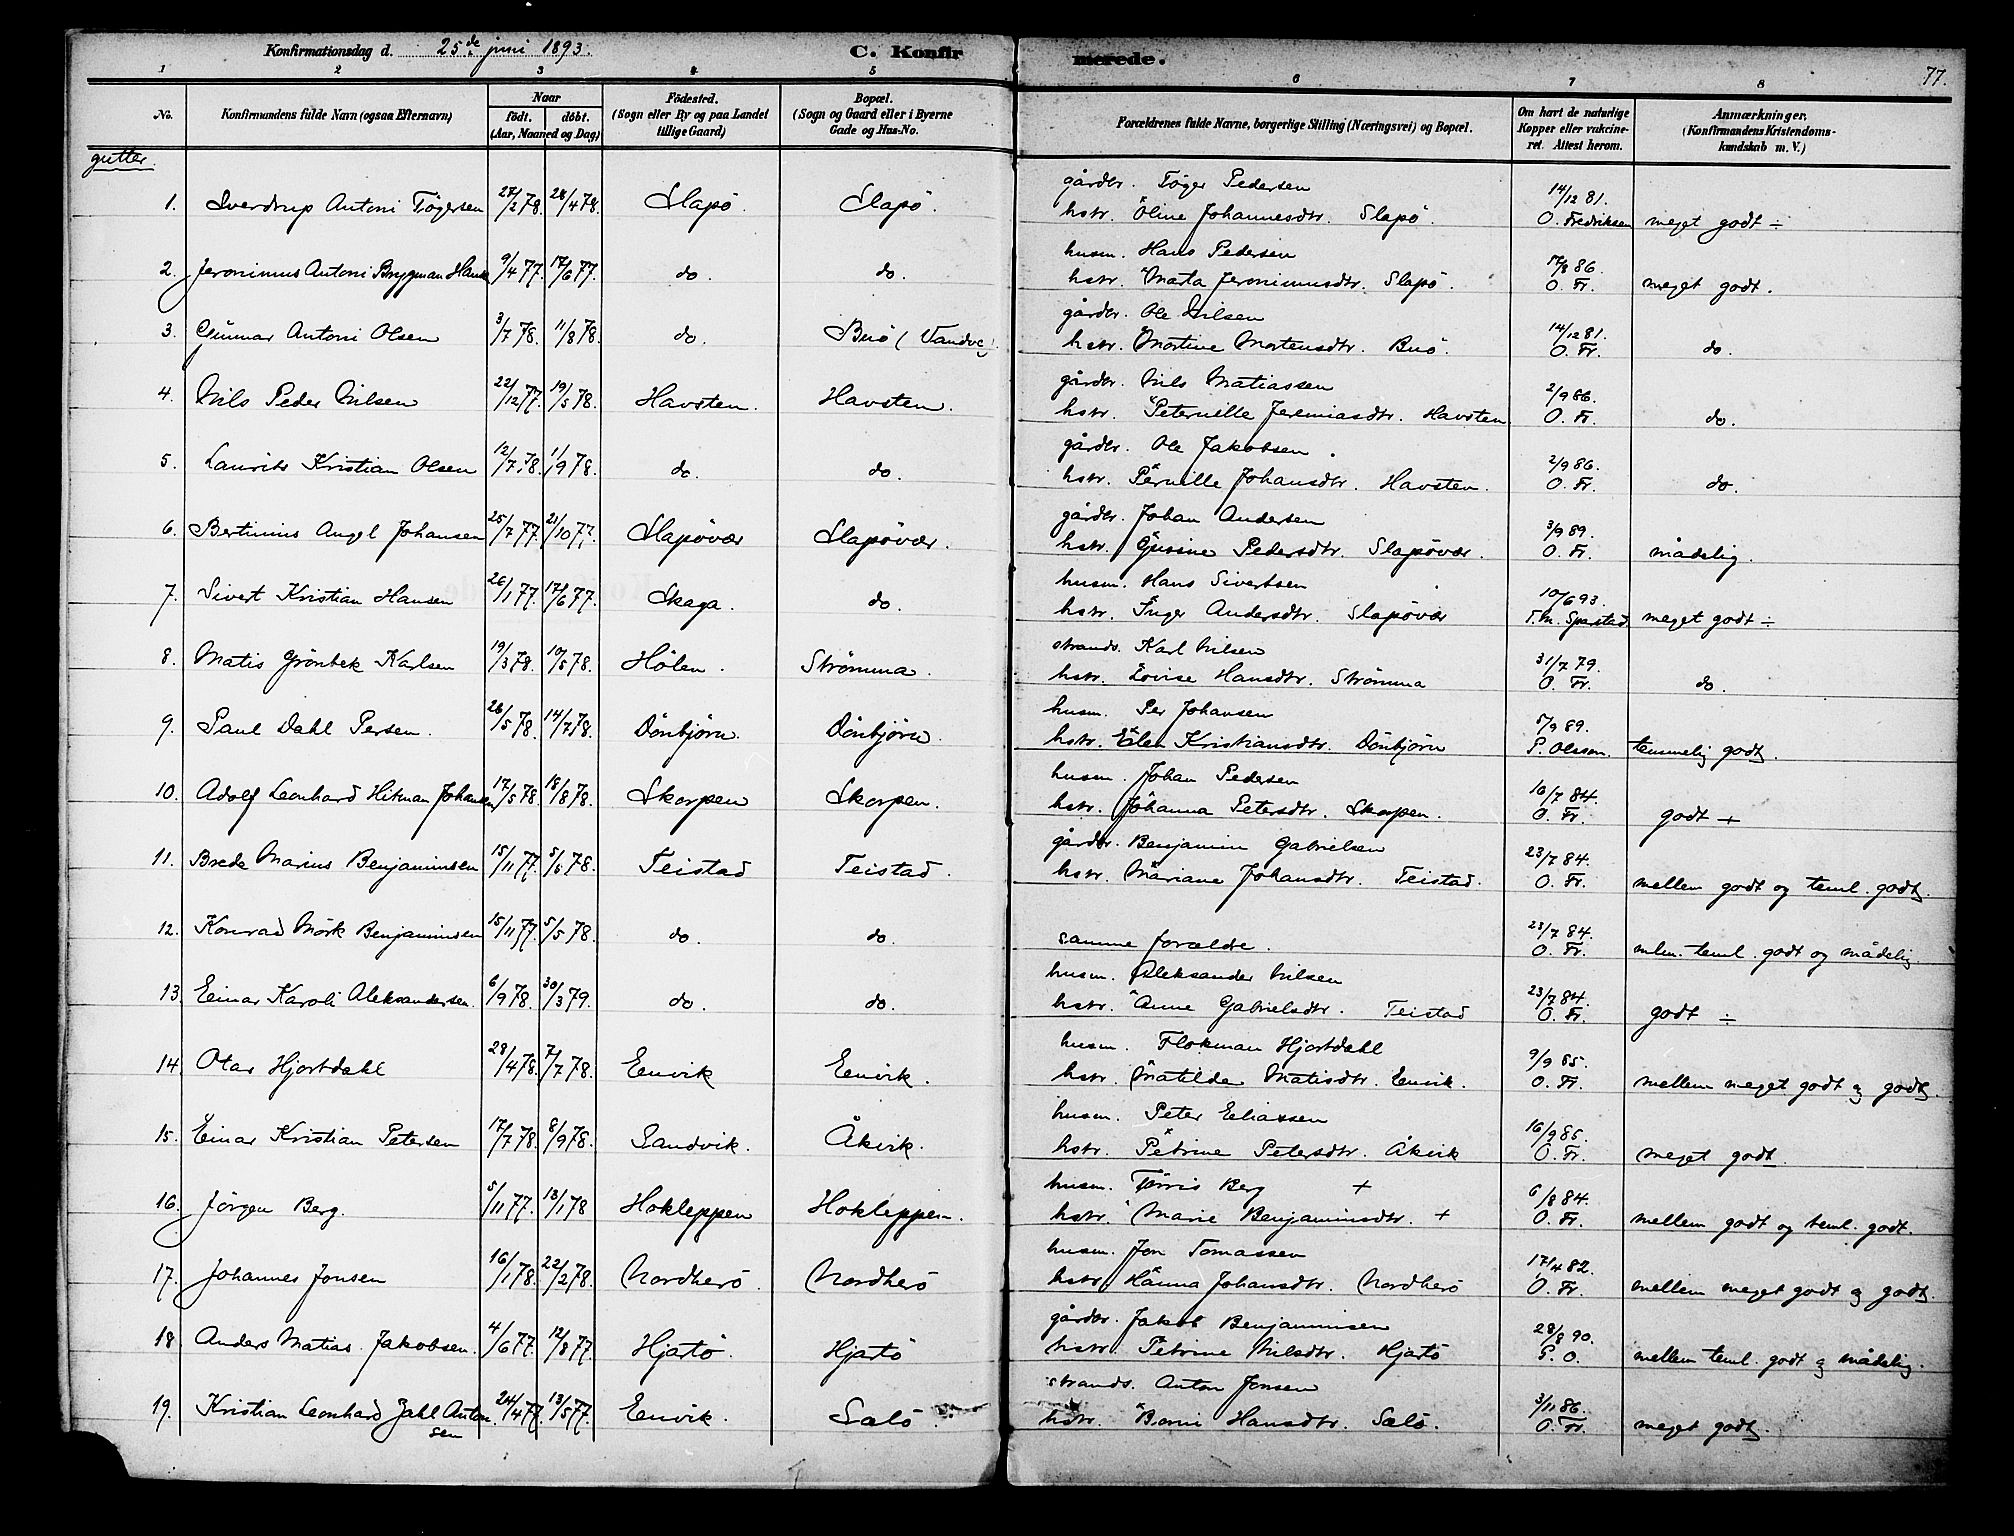 Konfirmationsdag d. 25de juni 1893. C. Konfirmerede. 77.
1 2 3 4 5 6 7 8
No. Konfirmandens fulde Navn (ogsaa Efternavn) Naar født. døbt. (Aar, Maaned og Dag) Fødested. (Sogn eller By og paa Landet tillige Gaard) Bopæl. (Sogn og Gaard eller i Byerne Gade og Hus-No. Forældrenes fulde Navne, borgerlige Stilling (Næringsvei) og Bopæl. Om havt de naturlige Kopper eller vakcineret. Attest herom. Anmærkninger. (Konfirmandens Kristendomskundskab m. V.)
gutter.
1. Sverdrup Antoni Tøgersen 27/2 78. 28/4 78. Slapö. Slapö. gårdbr. Tøger Pedersen 14/12 81.
hstr. Oline Johannesdtr. Slapö. O. Fredriksen meget godt ÷
2. Jeronimus Antoni Brygman Hansen 9/4 77. 17/6 77. do. do. husm. Hans Pedersen 17/8 86.
hstr. Marta Jeronimusdtr. Slapö. O. Fr. meget godt.
3. Gunnar Antoni Olsen 3/7 78. 11/8 78. do. Buö (Vandve) gårdbr. Ole Nilsen 14/12 81.
hstr. Martine Mortensdtr. Buö. O. Fr. do.
4. Nils Peder Nilsen 22/12 77. 19/5 78. Havsten. Havsten. gårdbr. Nils Matiassen 2/9 86.
hstr. Peternille Jeremiasdtr. Havsten O. Fr. do.
5. Laurits Kristian Olsen 12/7 78. 1/9 78. do. do. gårdbr. Ole Jakobsen. 2/9 86.
hstr. Pernille Johansdtr. Havsten. O. Fr. do.
6. Bertinius Angel Johansen 25/7 77. 21/10 77. Slapövær Slapövær. gårdbr. Johan Andersen 3/9 89.
hstr. Gurine Pedersdtr. Slapövær. O. Fr. mådelig.
7. Sivert Kristian Hansen 26/1 77. 17/6 77. Skaga. do. husm. Hans Sivertsen 10/6 93.
hstr. Inger Andersdtr. Slapövær T. M. Sparstad meget godt ÷
8. Matis Grönbek Karlsen 19/3 78. 19/5 78. Hölen. Strömma. strands. Karl Nilsen 31/7 79.
hstr. Lovise Hansdtr. Strömma O. Fr. do.
9. Paul Dahl Persen. 26/5 78. 14/7 78. Dönbjörn. Dönbjörn. husm. Per Johansen 5/9 89.
hstr. Elen Kristiansdtr. Dönbjörn P. Olsson. temmelig godt.
10. Adolf Leonhard Hitman Johansen 17/5 78 18/8 78. Skorpen Skorpen. husm. Johan Pedersen 16/7 84.
hstr. Johanna Petersdtr. Skorpen. O. Fr. godt +
11. Brede Marius Benjaminsen 15/11 77. 5/5 78. Teistad Teistad. gårdbr. Benjamin Gabrielsen 23/7 84.
hstr. Mariane Johansdtr. Teistad. O. Fr. mellem godt og teml. godt.
12. Konrad Mörk Benjaminsen 15/11 77. 5/5 78. do. do. samme forældre. 23/7 84.
O. Fr. mlm. teml. godt og mådelig.
13. Einar Karoli Aleksandersen. 6/9 78. 30/3 79. do. do. husm. Aleksander Nilsen 23/7 84.
hstr. Anne Gabrielsdtr. Teistad O. Fr. godt ÷
14. Otar Hjortdahl 28/4 78. 7/7 78. Envik Envik. husm. Flokman Hjortdahl 9/9 85.
hstr. Matilde Matisdtr. Envik. O. Fr. mellem meget godt og godt.
15. Einar Kristian Petersen 17/7 78. 8/9 78. Sandvik. Åkvik. husm. Peter Eliassen 16/9 85.
hstr. Petrine Petersdtr. Åkvik O. Fr. meget godt.
16. Jörgen Berg. 5/11 77. 13/1 78 Hokleppen Hokleppen. husm. Törris Berg + 6/8 84.
hstr. Marie Benjaminsdtr. + O. Fr. mellem godt og teml. godt.
17. Johannes Jonsen 16/1 78. 22/2 78. Nordherö. Nordherö husm. Jon Tomassen 17/4 82.
hstr. Hanna Johansdtr. Nordherö O. Fr. mellem meget godt og godt.
18 Anders Matias Jakobsen. 4/6 77. 12/8 77. Hjartö. Hjartö gårdbr. Jakob Benjaminsen 28/8 90.
hstr. Petrine Nilsdtr. Hjartö P. O. mellem teml. godt og mådelig.
19. Kristian Leonhard Jahl Antonsen 24/4 77. 13/5 77. Envik. Salö. strands. Anton Jensen 3/11 86.
hstr. Berni Hansdtr. Salö. O. Fr. meget godt.